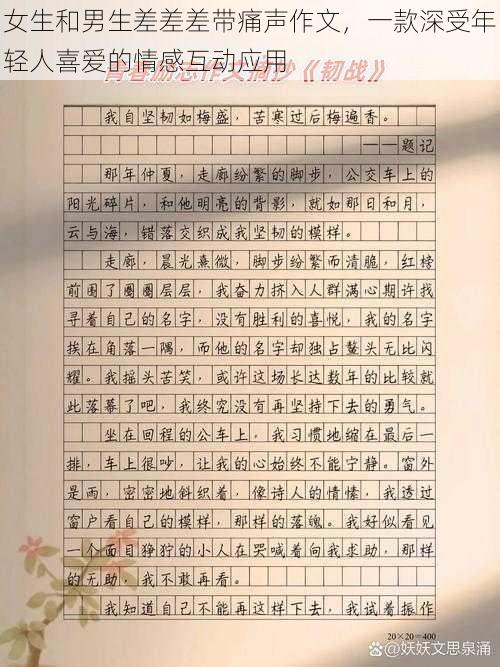 女生和男生差差差带痛声作文，一款深受年
轻人喜爱的情感互动应用
青春励志作文摘抄《韧战》
我自坚韧如梅盛，苦寒过后梅遍香。
——题记
那年仲夏，走廊纷繁的脚步，公交车上的
阳光碎片，和他明亮的背影，就如那日和月，
云与海，错落交织成我坚韧的模样。
走廊，晨光熹微，脚步纷繁而清脆，红榜
前围了圈圈层层，我奋力挤入人群满心期许找
寻着自己的名字，没有胜利的喜悦，我的名字
挨在角落一隅，而他的名字却独占鳌头无比闪
耀。我摇头苦笑，或许这场长达数年的比较就
此落幕了吧，我终究没有再坚持下去的勇气。
坐在回程的公车上，我习惯地缩在最后一
排，车上很吵，让我的心始终不能宁静。窗外
是雨，密密地斜织着，像诗人的情愫，我透过
窗户看自己的模样，那样的落魄。我好似看见
一个面目狰狞的小人在哭喊着向我求助，那样
的无助，我不敢再看。
我知道自己不能再这样下去，我试着振作
20×20=400
@妖妖文思泉涌